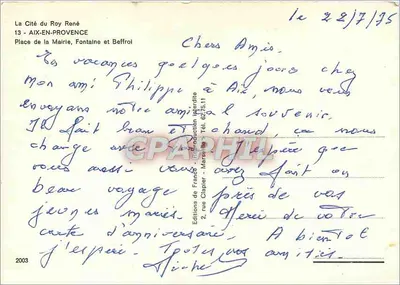 La Cité du Roy René
13 - AIX-EN-PROVENCE
Place de la Mairie, Fontaine et Beffroi
le 22/7/75
Chers Amis.
En vacances quelques jours chez
mon ami Philippe à Aix, nous vous
envoyons notre amical souvenir.
Il fait beau et chaud ça nous
change avec J'espère que
vous aussi vous avez fait un
beau voyage près de vos
jeunes mariés. Merci de votre
carte d'anniversaire. A bientôt
j'espère. Toutes nos amitiés.
Michel
Editions de France - Reproduction interdite
2, rue Clapier - Marseille - Tél. 62.75.11
CPARAMA
2003